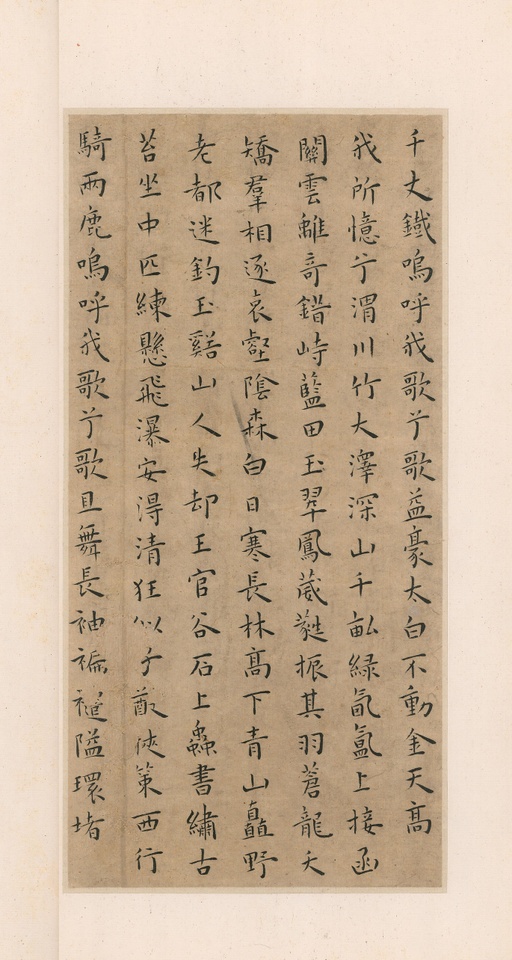 千丈鐵嗚呼我歌兮歌益豪太白不動金天高
我所憶兮渭川竹大澤深山千畝緑氤氳上接函
關雲離奇錯峙藍田玉翠鳳葳蕤振其羽蒼龍夭
矯羣相逐哀壑陰森白日寒長林高下青山矗野
老都迷釣玉谿山人失却王官谷石上蟲書繡古
苔坐中匹練懸飛瀑安得清狂似子猷俠策西行
騎兩鹿嗚呼我歌兮歌且舞長袖褊褼隘環堵